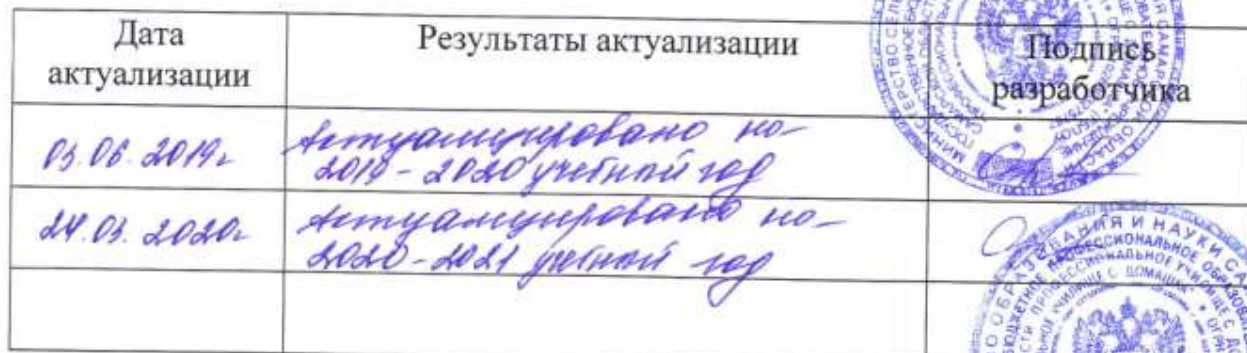 Дата
актуализации
Результаты актуализации
Подпись
разработчика
03.06.2019г
Актуализировано на
2019-2020 учебный год
24.03.2020г
Актуализировано на
2020-2021 учебный год